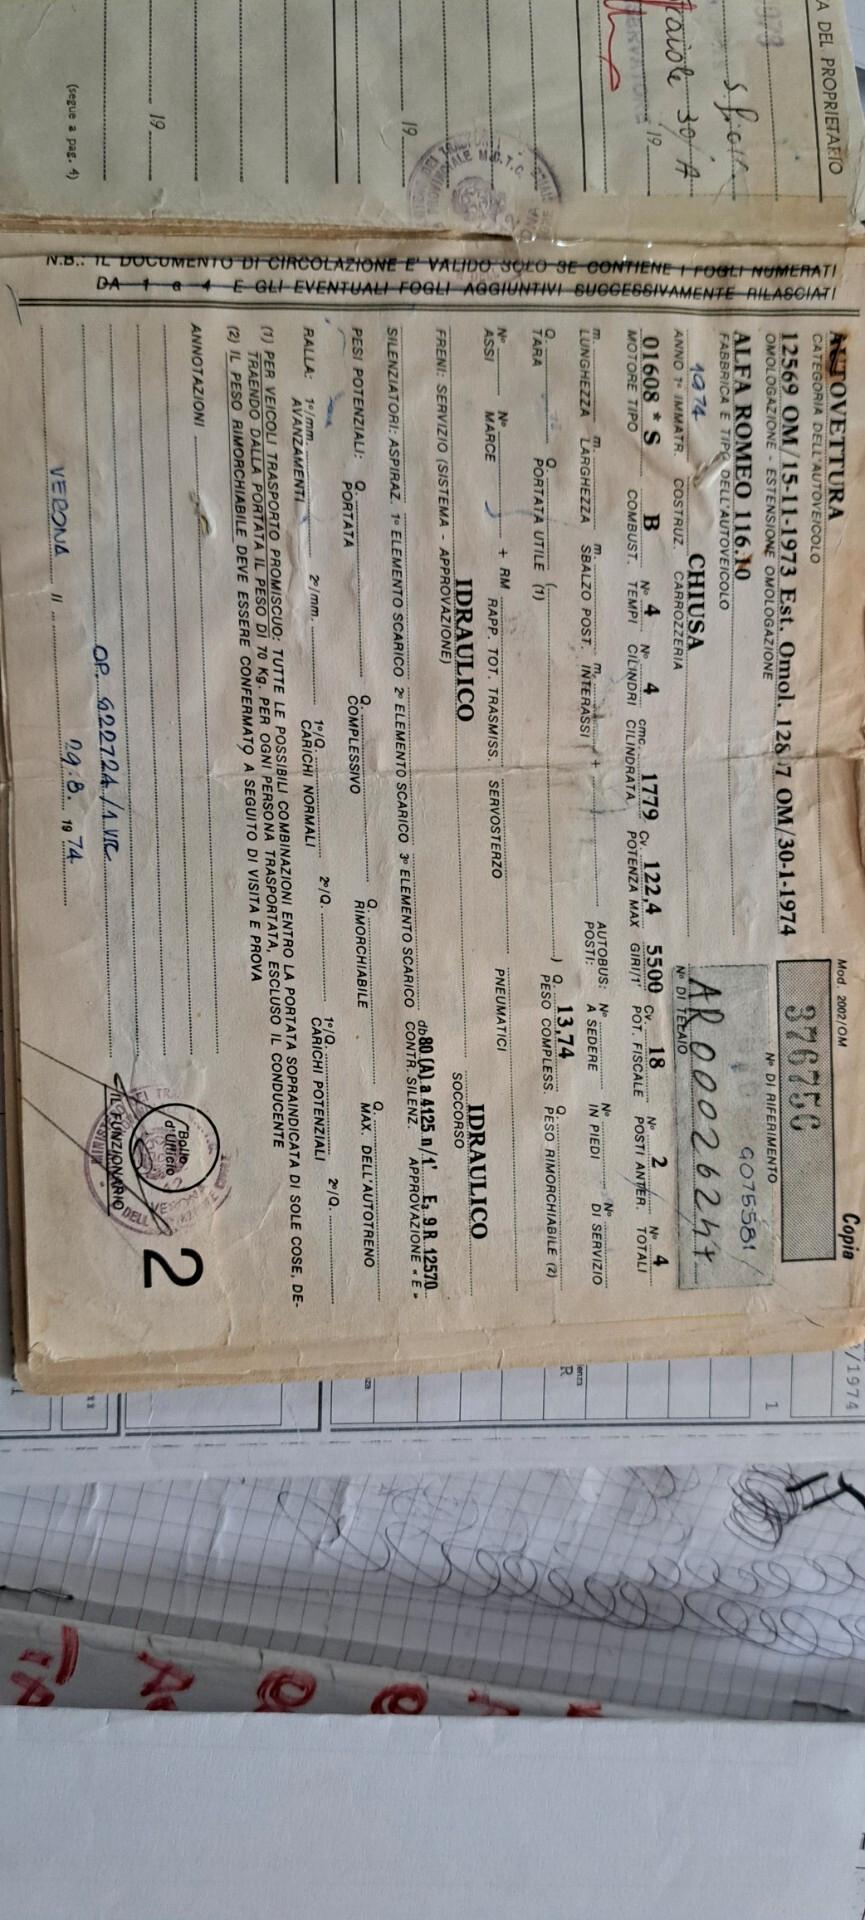 A DEL PROPRIETARIO
19
19
19
(segue a pag. 4)
N.B.: IL DOCUMENTO DI CIRCOLAZIONE E' VALIDO SOLO SE CONTIENE I FOGLI NUMERATI
DA 1 a 4 E GLI EVENTUALI FOGLI AGGIUNTIVI SUCCESSIVAMENTE RILASCIATI
Copia
Mod. 2002/OM
AUTOVETTURA
CATEGORIA DELL'AUTOVEICOLO
37675G
12569 OM/15-11-1973 Est. Omol. 12807 OM/30-1-1974
OMOLOGAZIONE - ESTENSIONE OMOLOGAZIONE
N° DI RIFERIMENTO
ALFA ROMEO 116.10
FABBRICA E TIPO DELL'AUTOVEICOLO
9075581
1974 CHIUSA
ANNO 1ª IMMATR. COSTRUZ. CARROZZERIA
AR00026247
N° DI TELAIO
01608 * S B N° 4 N° 4 cmc. 1779 Cv. 122,4 5500 Cv. 18 N° 2 N° 4
MOTORE TIPO COMBUST. TEMPI CILINDRI CILINDRATA POTENZA MAX GIRI/1' POT. FISCALE POSTI ANTER. TOTALI
m. m. m. m. +
LUNGHEZZA LARGHEZZA SBALZO POST. INTERASSI
AUTOBUS: N° N° N°
POSTI: A SEDERE IN PIEDI DI SERVIZIO
Q. Q. ( ) Q. 13,74 Q.
TARA PORTATA UTILE (1) PESO COMPLESS. PESO RIMORCHIABILE (2)
N° N° + RM
ASSI MARCE RAPP. TOT. TRASMISS. SERVOSTERZO PNEUMATICI
IDRAULICO IDRAULICO
FRENI: SERVIZIO (SISTEMA - APPROVAZIONE) SOCCORSO
db 80 (A) a 4125 n/1' E3 9 R 12570
SILENZIATORI: ASPIRAZ. 1° ELEMENTO SCARICO 2° ELEMENTO SCARICO 3° ELEMENTO SCARICO CONTR. SILENZ. APPROVAZIONE « E »
PESI POTENZIALI: Q. Q. Q. Q.
PORTATA COMPLESSIVO RIMORCHIABILE MAX. DELL'AUTOTRENO
RALLA: 1°/mm. 2°/mm. 1°/Q. 2°/Q. 1°/Q. 2°/Q.
AVANZAMENTI CARICHI NORMALI CARICHI POTENZIALI
(1) PER VEICOLI TRASPORTO PROMISCUO: TUTTE LE POSSIBILI COMBINAZIONI ENTRO LA PORTATA SOPRAINDICATA DI SOLE COSE, DE-
TRAENDO DALLA PORTATA IL PESO DI 70 Kg. PER OGNI PERSONA TRASPORTATA, ESCLUSO IL CONDUCENTE
(2) IL PESO RIMORCHIABILE DEVE ESSERE CONFERMATO A SEGUITO DI VISITA E PROVA
ANNOTAZIONI
OP. 622724/1 VR
VERONA lì 29.8. 19 74
Bollo
d'Ufficio
IL FUNZIONARIO
2
/1974
1